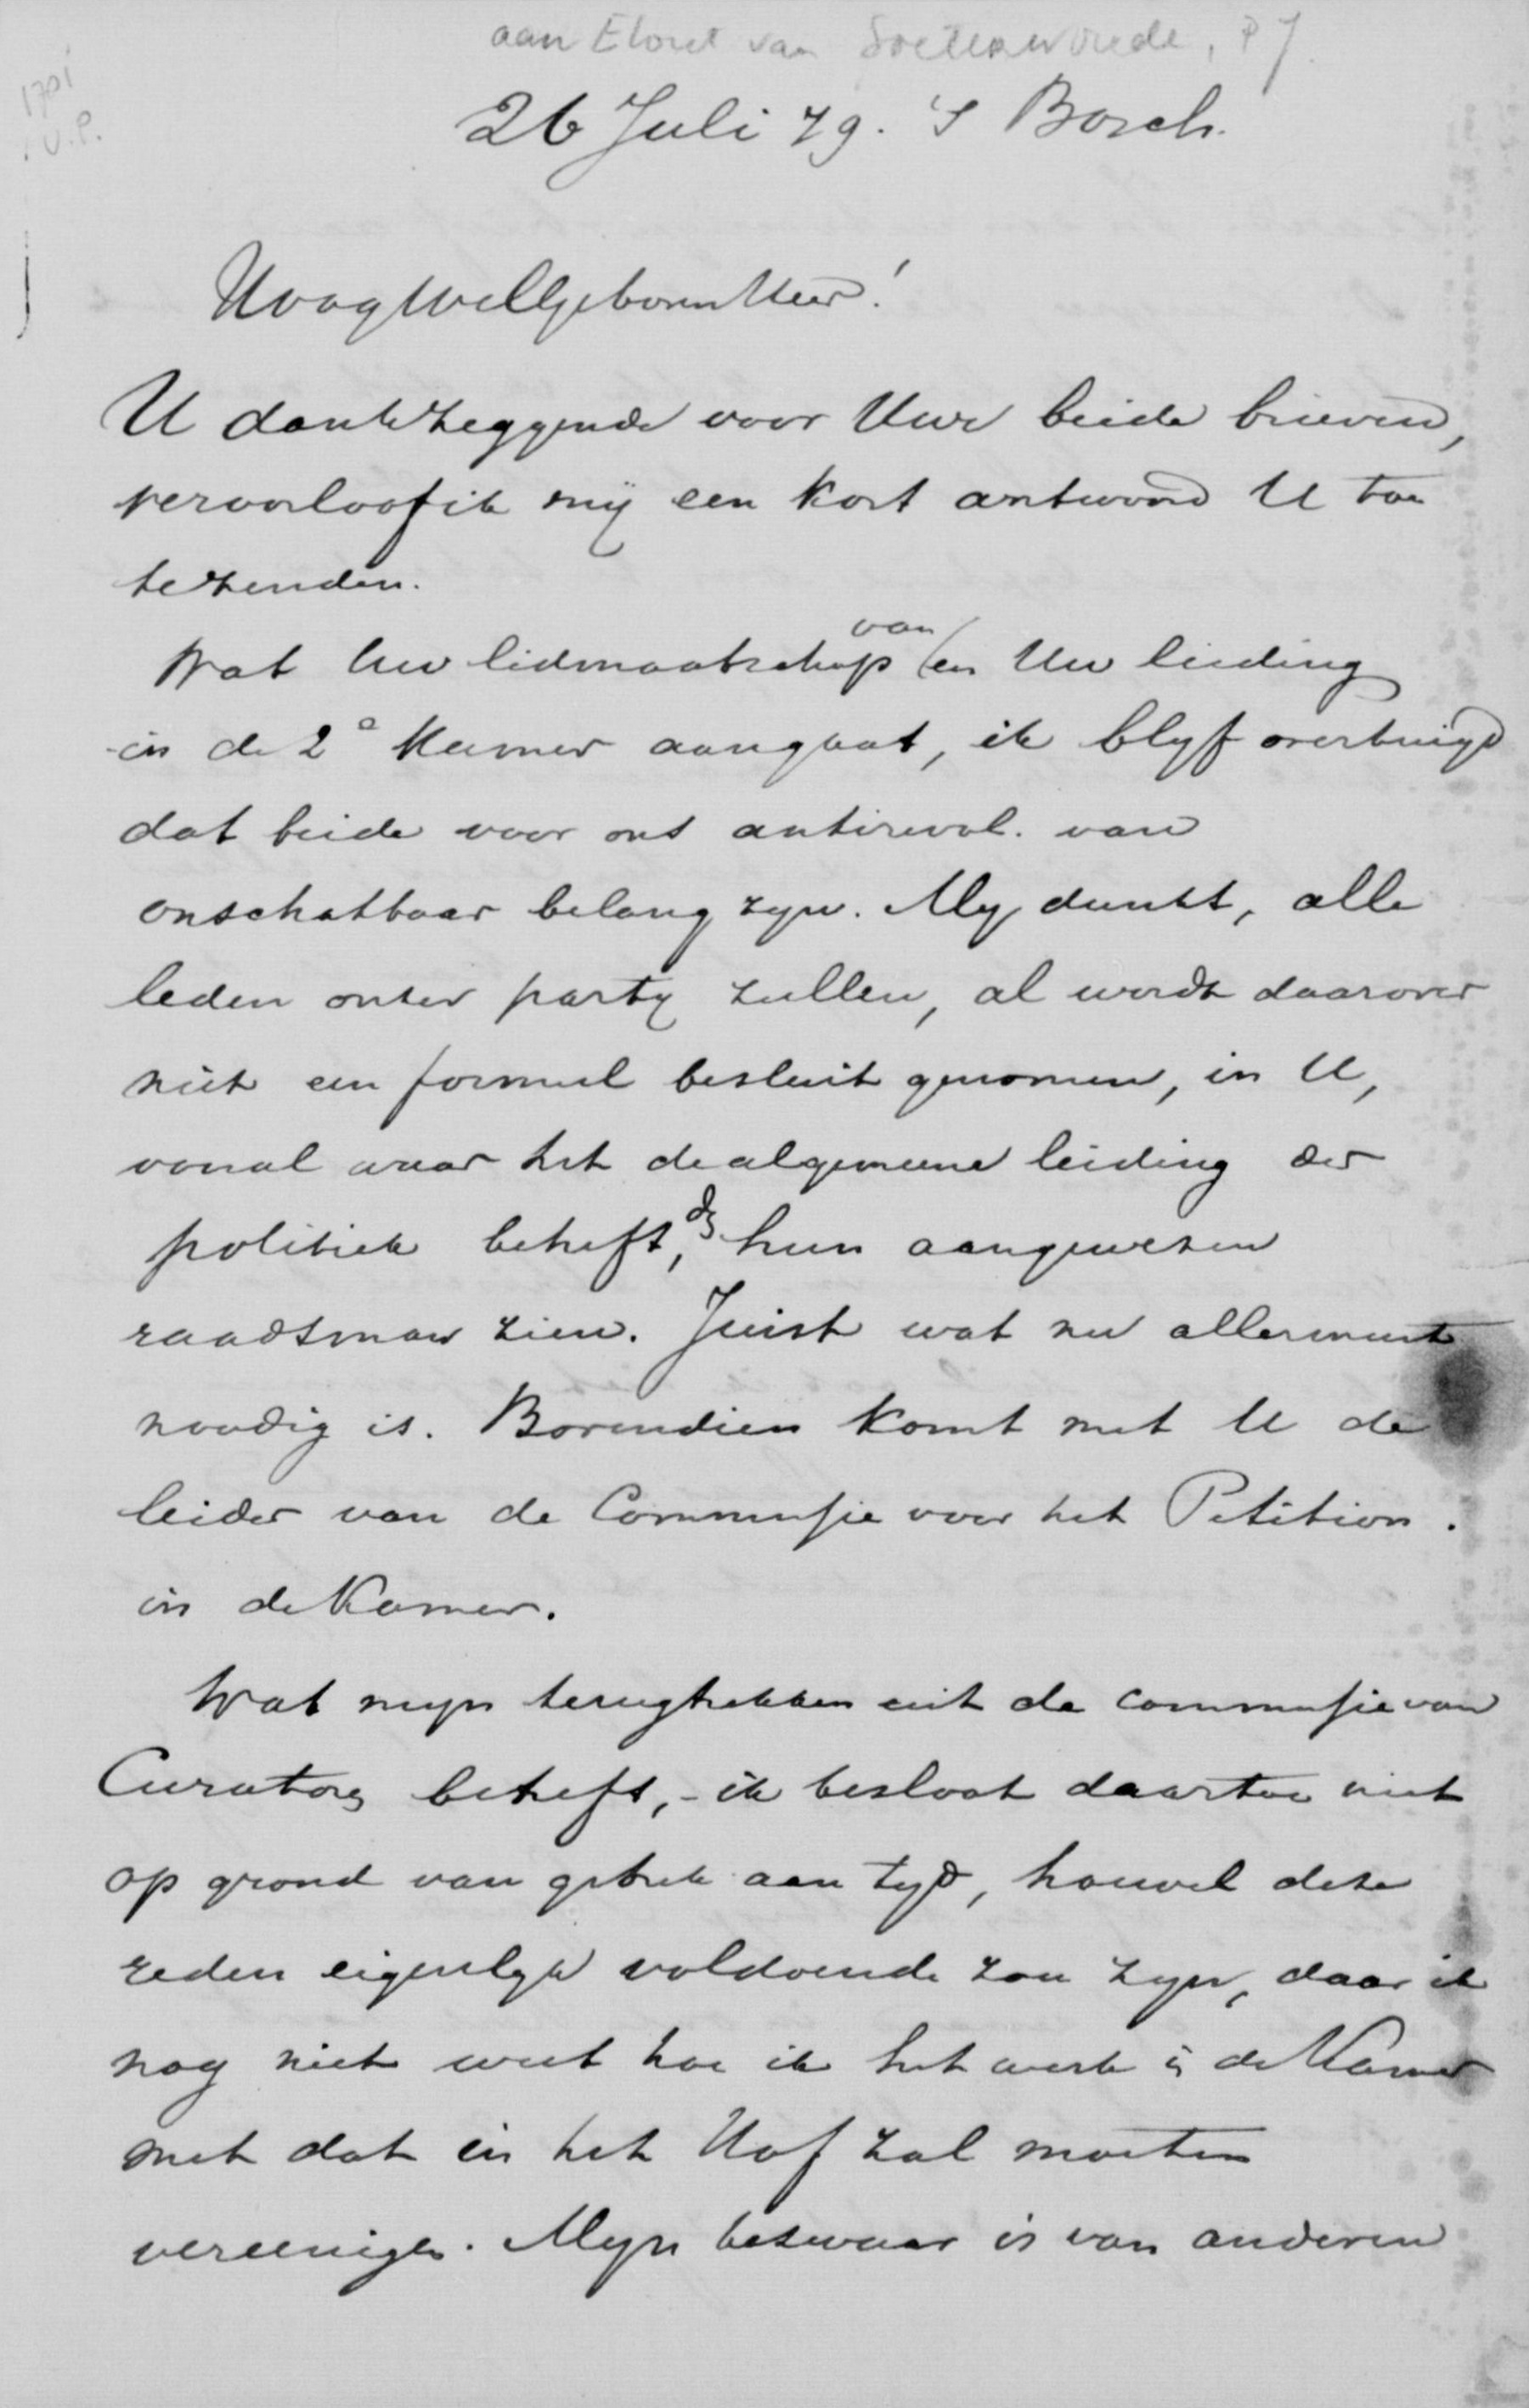 aan Elout van Soeterwoude, P J
1701
U.P.
26 Juli 79. 's Bosch.
HoogWelGeboren Heer!
U dankzeggende voor Uwe beide brieven,
veroorloof ik mij een kort antwoord U toe
te zenden.
Wat Uw lidmaatschap van en Uw leiding
in de 2e Kamer aangaat, ik blyf overtuigd
dat beide voor ons antirevol. van
onschatbaar belang zyn. My dunkt, alle
leden onzer party zullen, al wordt daarover
niet een formeel besluit genomen, in U,
vooral waar het de algemeene leiding der
politiek betreft, hun aangewezen
raadsman zien. Juist wat nu allermeest
noodig is. Bovendien komt met U de
leider van de Commissie voor het Petition.
in de Kamer.
Wat myn terugtrekken uit de commissie van
Curators betreft, - ik besloot daartoe niet
op grond van gebrek aan tyd, hoewel deze
reden eigenlyk voldoende zou zyn, daar ik
nog niet weet hoe ik het werk in de Kamer
met dat in het Hof zal moeten
vereenigen. Myn bezwaar is van anderen